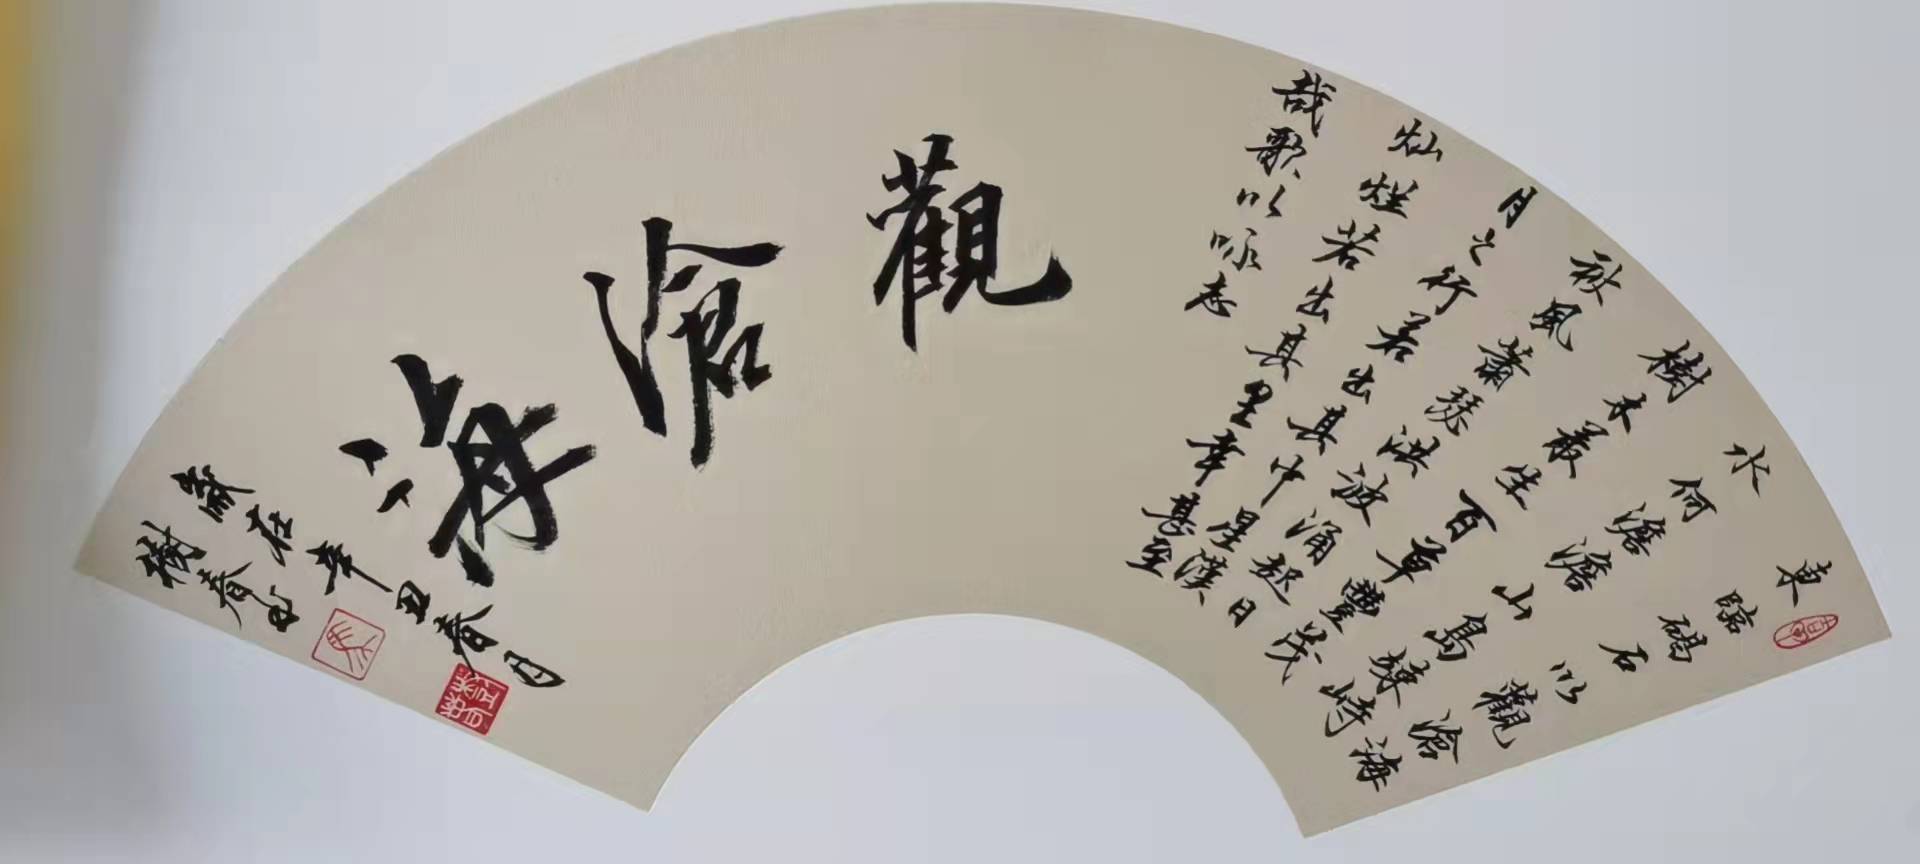 東臨碣石以觀滄海
水何澹澹山島竦峙
樹木叢生百草豐茂
秋風蕭瑟洪波涌起日
月之行若出其中星漢
灿烂若出其里幸甚至
哉歌以咏志
觀滄海
歲在辛丑春月
樹春书